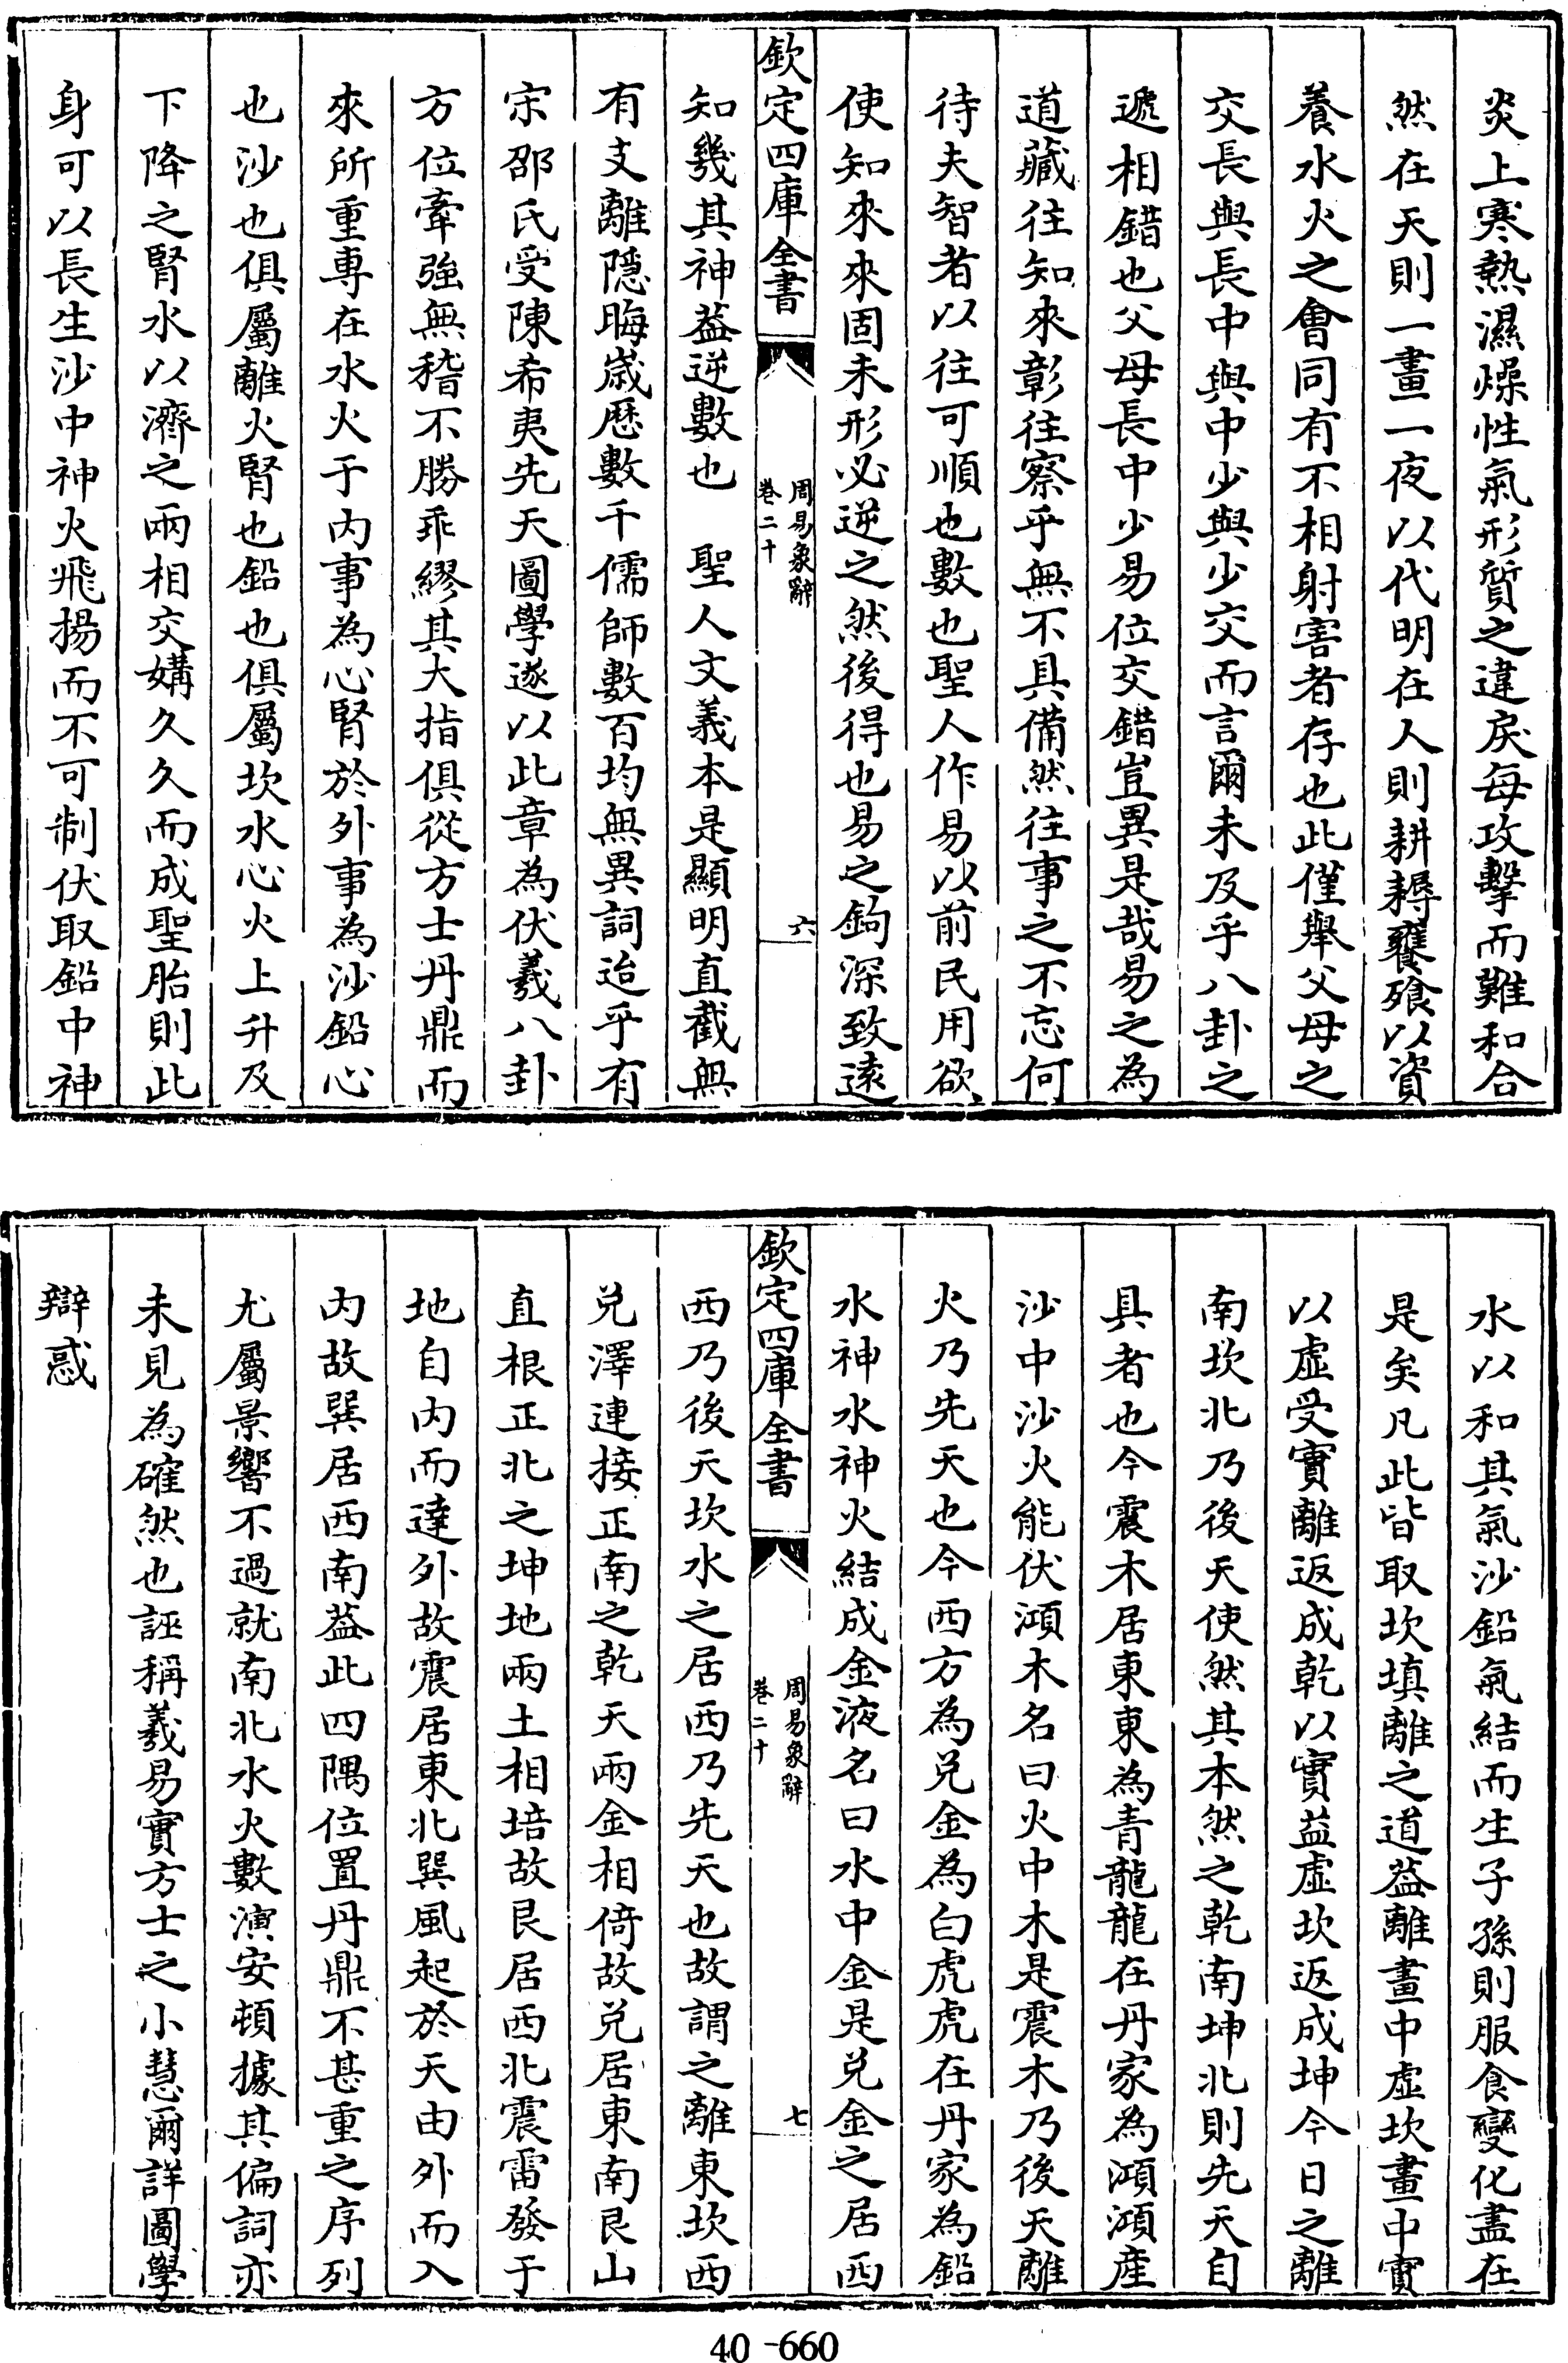 炎上寒熱濕燥性氣形質之違戾每攻擊而難和合
然在天則一晝一夜以代明在人則耕耨饔飧以資
養水火之會同有不相射害者存也此僅舉父母之
交長與長中與中少與少交而言爾未及乎八卦之
遞相錯也父母長中少易位交錯豈異是哉易之為
道藏往知來彰往察乎無不具備然往事之不忘何
待夫智者以往可順也數也聖人作易以前民用欲
使知來來固未形必逆之然後得也易之鉤深致遠
欽定四庫全書
周易象辭
卷二十
六
知幾其神葢逆數也　聖人文義本是顯明直截無
有支離隱晦嵗歷數千儒師數百均無異詞迨乎有
宋邵氏受陳希夷先天圖學遂以此章為伏羲八卦
方位牽強無稽不勝乖繆其大指俱從方士丹鼎而
來所重專在水火于內事為心腎於外事為沙鉛心
也沙也俱屬離火腎也鉛也俱屬坎水心火上升及
下降之腎水以濟之兩相交媾久久而成聖胎則此
身可以長生沙中神火飛揚而不可制伏取鉛中神
水以和其氣沙鉛氣結而生子孫則服食變化盡在
是矣凡此皆取坎填離之道葢離畫中虛坎畫中實
以虛受實離返成乾以實益虛坎返成坤今日之離
南坎北乃後天使然其本然之乾南坤北則先天自
具者也今震木居東東為青龍龍在丹家為澒澒產
沙中沙火能伏澒木名曰火中木是震木乃後天離
火乃先天也今西方為兌金為白虎虎在丹家為鉛
水神水神火結成金液名曰水中金是兌金之居西
欽定四庫全書
周易象辭
卷二十
七
西乃後天坎水之居西乃先天也故謂之離東坎西
兌澤連接正南之乾天兩金相倚故兌居東南艮山
直根正北之坤地兩土相培故艮居西北震雷發于
地自內而達外故震居東北巽風起於天由外而入
內故巽居西南葢此四隅位置丹鼎不甚重之序列
尤屬景響不過就南北水火數演安頓據其偏詞亦
未見為確然也誣稱羲易實方士之小慧爾詳圖學
辯惑
40-660